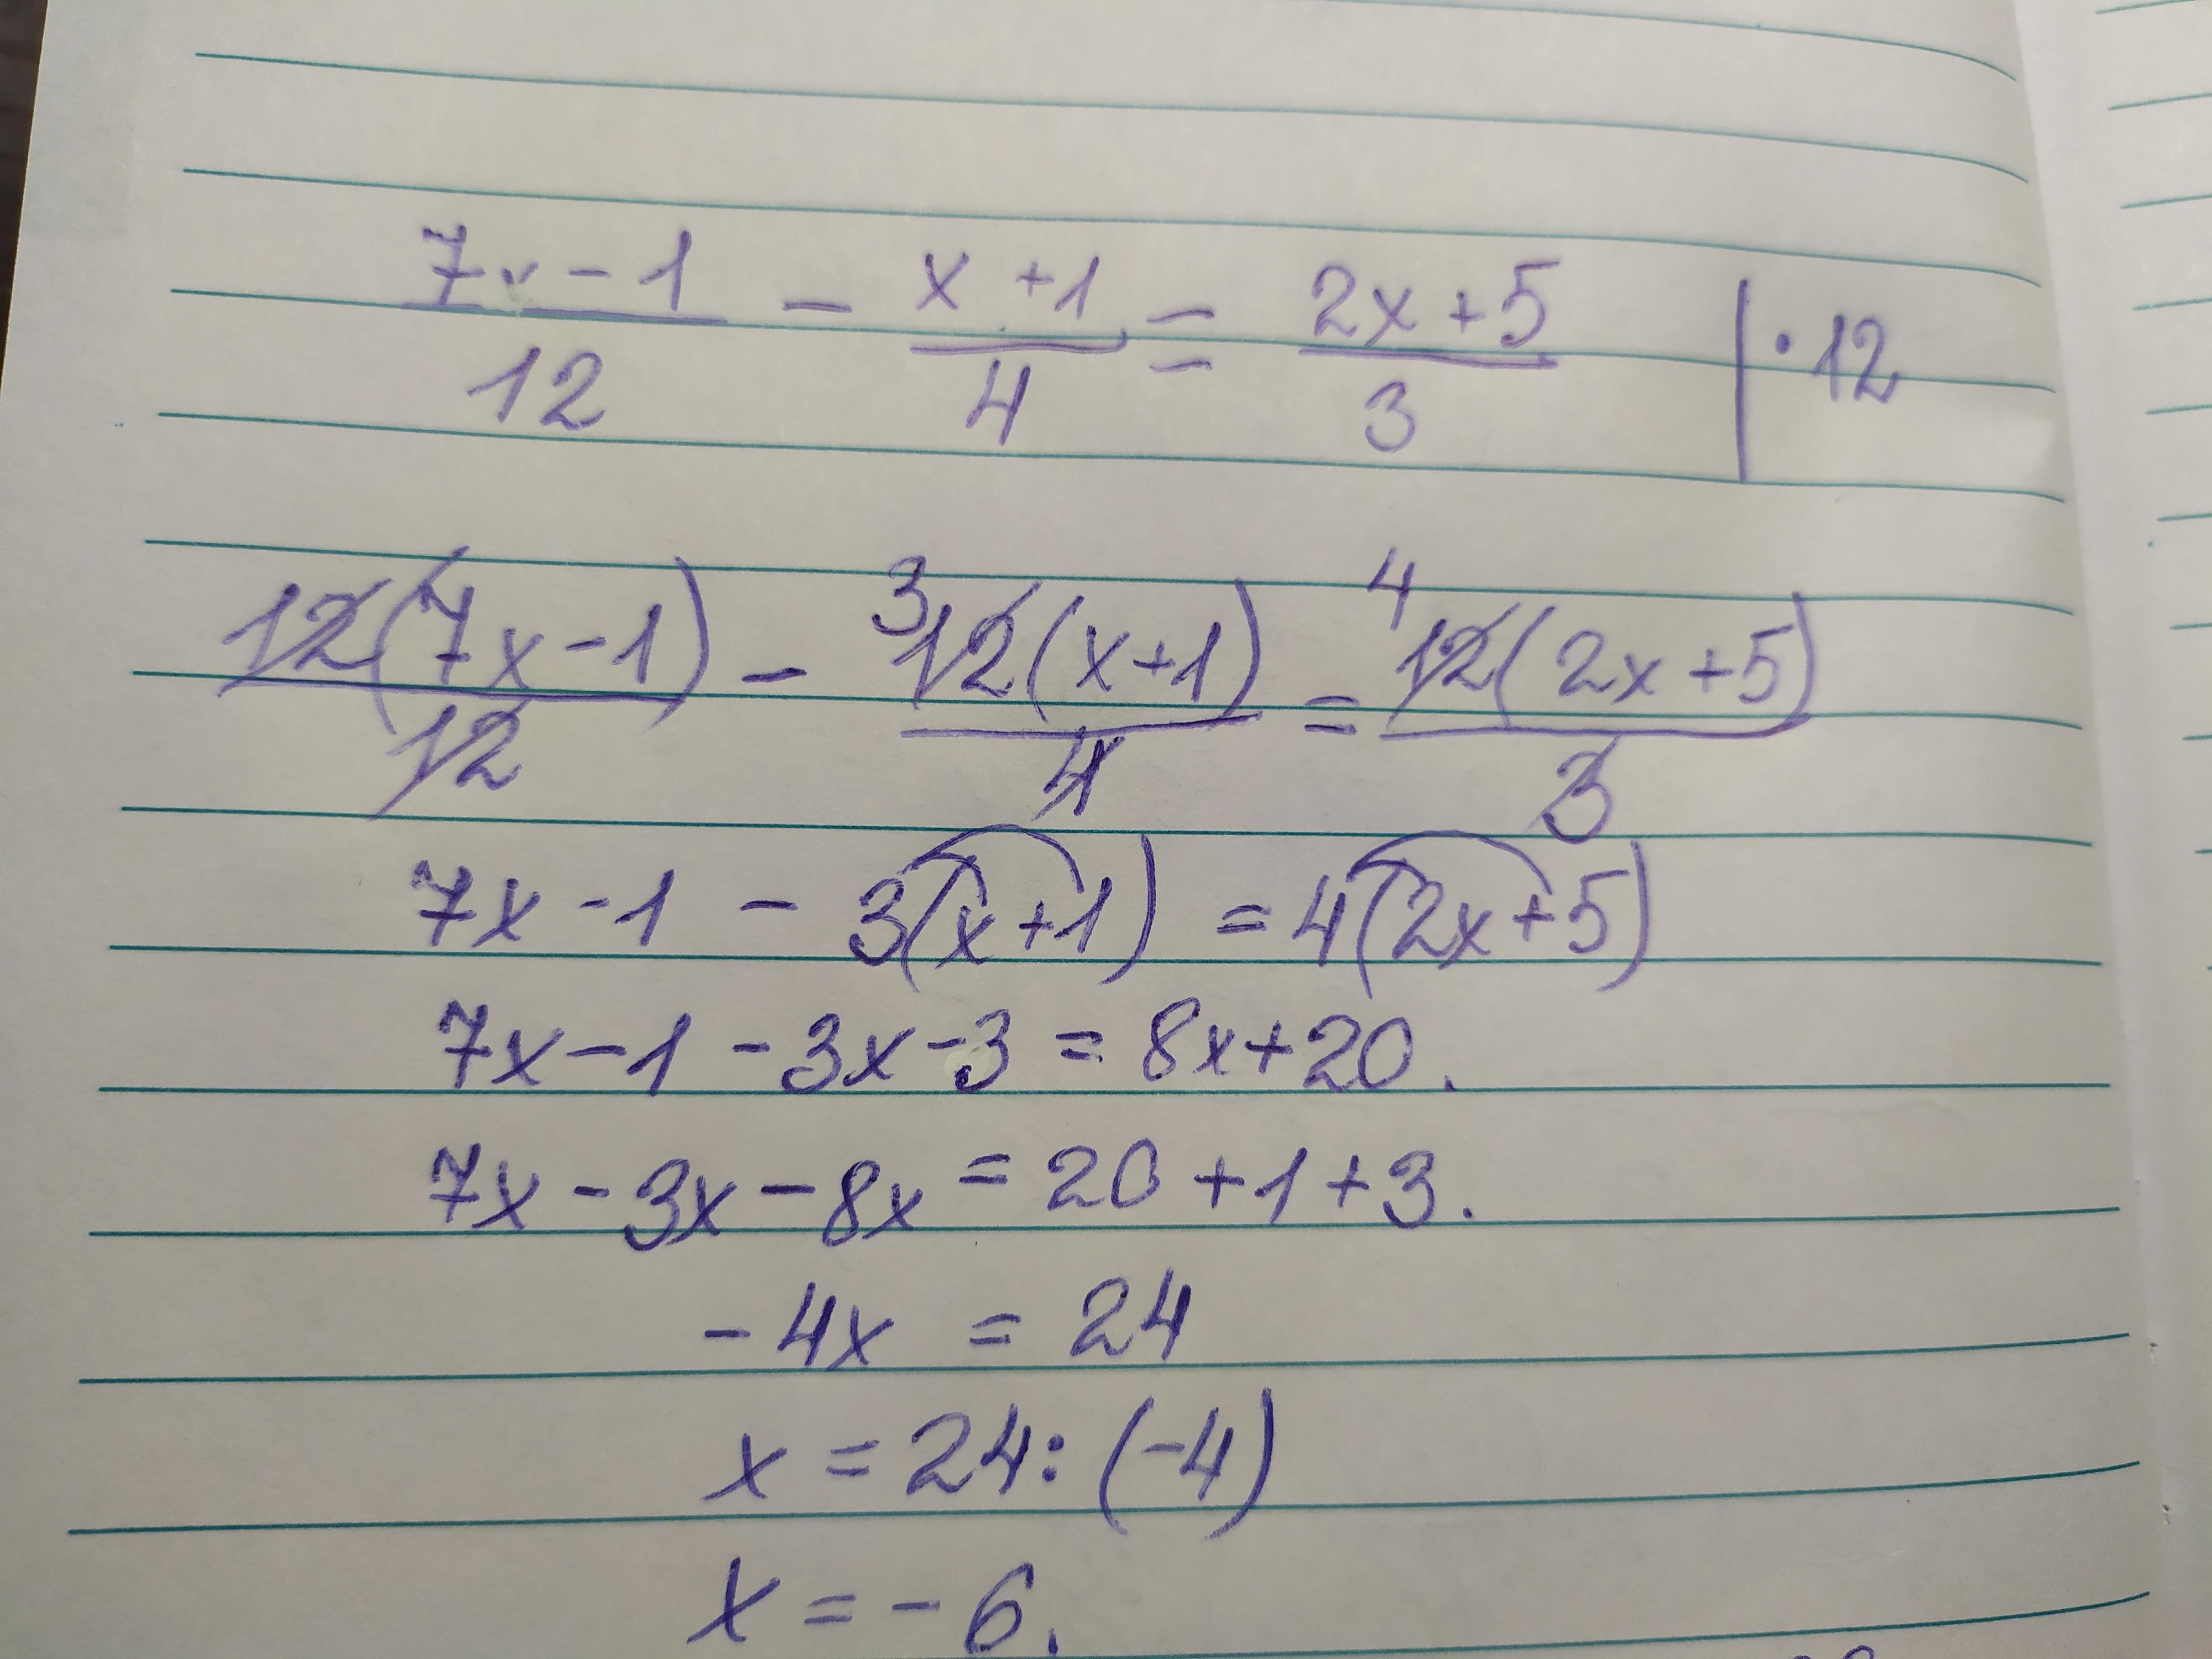 (7x - 1)/12 - (x + 1)/4 = (2x + 5)/3 | · 12
12(7x - 1)/12 - ³12(x+1)/4 = ⁴12(2x + 5)/3
7x - 1 - 3(x+1) = 4(2x+5)
7x - 1 - 3x - 3 = 8x + 20.
7x - 3x - 8x = 20 + 1 + 3.
- 4x = 24
x = 24 : (-4)
x = - 6.